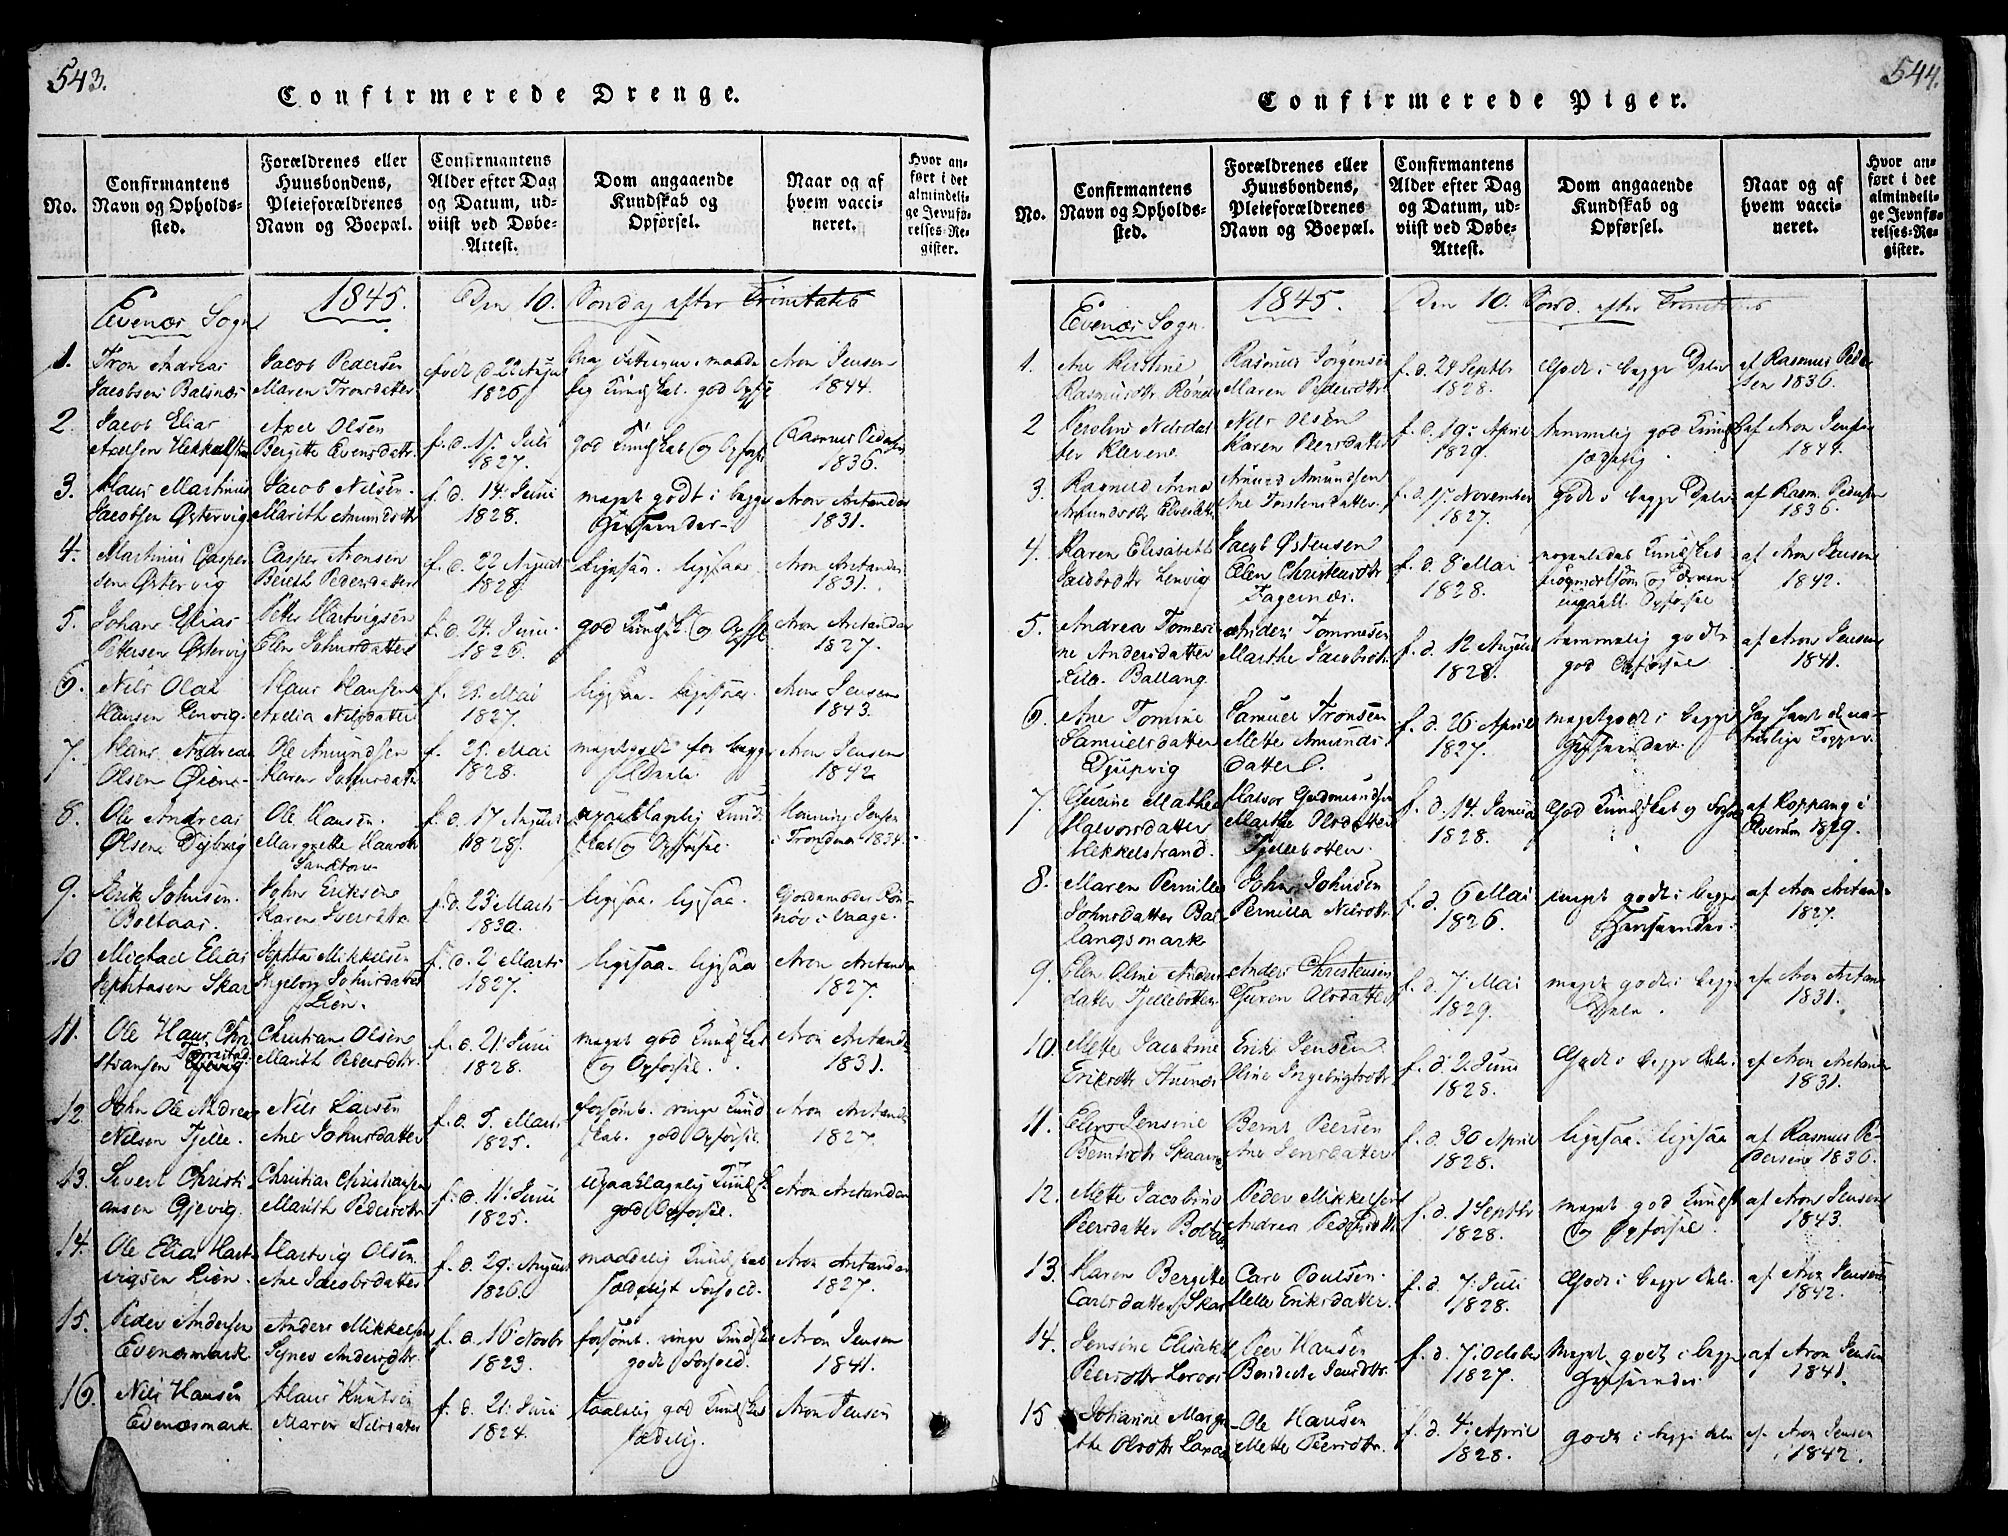 543.
Confirmerede Drenge.
No.
Confirmantens
Navn og Opholds-
sted.
Forældrenes eller
Huusbondens,
Pleieforældrenes
Navn og Boepæl.
Confirmantens
Alder efter Dag
og Datum, ud-
viist ved Døbe-
Attest.
Dom angaaende
Kundskab og
Opførsel.
Naar og af
hvem vacci-
neret.
Hvor an-
ført i det
almindeli-
ge Jevnfø-
relses-Re-
gister.
Evenæs Sogn 1845. Den 10. Søndag efter Trinitatis
1. Tron Andreas
Jacobsen Balsnes
Jacob Pedersen
Maren Tronsdatter
født d 22 Augu
1826
god Opfs
Aron Jensen
1844.
2. Jacob Elias
Axelsen
Axel Olsen
Bergitte Evensdatr.
f. d. 15 Juli
1827.
god Kundskab og Opførsel
Rasmus Peders
1836.
3. Hans Martinus
Jacobsen Østervig
Jacob Nilsen.
Marith Amundsdtr
f. d. 14. Juni
1828.
meget godt i begge
Henseender.
Aron Arctander
1831.
4. Martinus Casper
sen Østervig
Casper Aronsen
Bereth Pedersdatter
f. d. 22 August
1828.
ligesaa. ligesaa.
Aron Arctander
1831.
5. Johan Elias
Pettersen Østervig
Peter Hartvigsen
Elen Johnsdatter
f. d. 24. Juni
1826.
god Kundsk. og Opfs.
Aron Arctander
1827.
6. Nils Olai
Hansen Lenvig.
Hans Hansen
Axelia Nilsdatter
f. 25. Mai
1827.
ligesaa. ligesaa.
Aron Jensen
1843.
7. Hans Andreas
Olsen
Ole Amundsen
Karen Johnsdatr
f. 25. Mai
1828.
meget godt for begge
Deele.
Aron Jensen
1842
8. Ole Andreas
Olsen Dybvig
Ole Hansen.
Margrethe Hansdtr
Sandtorv
f. d. 17 August
1828.
upaaklagelig Kund
skab og Opførsel.
Henning Jensen
i Trondenes 1834.
9. Erik Johnsen
Boltaas.
John Eriksen
Karen
f. d. 23 Marts
1830.
ligesaa. ligesaa.
Gjordemoder
i Vaage.
10 Michael Elias
Jephtasen Skar
Jephta Mikkelsen
Ingeborg Johnsdatter
Lien.
f. d. 2 Marts
1827.
ligesaa. ligesaa
Aron Arctander
1827.
11. Ole Hans Chri
stiansen
Christian Olsen
Marith Pedersdtr.
f. d. 21. Juni
1828.
meget god Kundskab
og Opførsel.
Aron Arctand
1831.
12. John Ole Andreas
Nilsen Tjelle.
Nils Larsen
Ane Johnsdatter
f. d. 5. Marts
1825.
forsømt. ringe Kund
skab. god Opførsel.
Aron Arctander
1827.
13. Sivert Christi
ansen Gjevig.
Christian Christiansen
Marith Pedersdtr
f. d. 11. Juni
1825.
upaaklagelig Kundsk.
god Opførsel.
Aron Arctander
14. Ole Elias Hart
vigsen Lien.
Hartvig Olsen
Ane Jacobsdatter
f. d. 29. August
1826.
maadelig Kundskab
sædeligt Forhold.
Aron Arctander
1827.
15. Peder Andersen
Evenæsmark
Anders Mikkelsen
Signes Andersdtr.
f. d. 16 Novbr
1823.
forsømt. ringe Kundskab
godt Forhold.
Aron Jensen
1841.
16. Nils Hansen
Evenæsmark
Hans Knutsen
Maren Nilsdatter
f. d. 21. Juni
1824.
taalelig god Kundskab
sædelig.
Aron Jensen
544.
Confirmerede Piger.
No.
Confirmantens
Navn og Opholds-
sted.
Forældrenes eller
Huusbondens,
Pleieforældrenes
Navn og Boepæl.
Confirmantens
Alder efter Dag
og Datum, ud-
viist ved Døbe-
Attest.
Dom angaaende
Kundskab og
Opførsel.
Naar og af
hvem vacci-
neret.
Hvor an-
ført i det
almindeli-
ge Jevnfø-
relses-Re-
gister.
Evenæs Sogn. 1845. Den 10. Sønd. efter Trinitatis
1. Ane Kirstine
Rasmusdtr
Rasmus Jørgensen
Maren Pedersdtr.
f. d. 24 Septbr
1828.
Godt i begge Dele
af Rasmus Peder
sen 1836.
2 Karoline Nilsdat
ter Klevene.
Nils Olsen
Karen Peersdatter
f. d. 19. April
1829.
temmelig god Kundsk
sædelig.
af Aron Jensen
1844.
3. Ragnild Anna
Amundsdtr
Amund Amundsen
Ane Torstensdatter.
f. d. 15. November
1827.
Godt i begge Dele
af Rasm. Pedersen
1836.
4. Karen Elisabeth
Jacobsdtr Lenvig
Jacob Østensen
Elen Christensdtr
Fagernæs.
f. d. 8 Mai
1828.
Kundskab
Opførsel
af Aron Jensen
1842.
5. Andrea Tomesi
ne Andersdatter
Lilo. Ballang.
Anders Tommesen
Marthe Jacobsdtr.
f. d. 12 August
1828.
temmelig godt
god Opførsel.
af Aron Jensen
1841.
6. Ane Tomine
Samuelsdatter
Djupvig
Samuel Tronsen
Mette Amunds
datter.
f. d. 26 April
1827.
meget godt i begge
Henseender.
har havt de na-
turlige Kopper.
7. Gurine Mathea
Halvorsdatter
Mekkelstrand.
Halvor Gudmundsen
Marthe Olsdatter
Tjellebotten.
f. d. 14. Januar
1828.
God Kundskab og
af Koppang i
Elverum 1829.
8. Maren Pernille
Johnsdatter Bal
langsmark
John Johnsen
Pernilla Nilsdtr.
f. d. 6 Mai
1826.
meget godt i begge
Henseender.
af Aron Arctand.
1827.
9. Elen Oline Anders
datter Tjellebotten
Anders Christensen
Guren Olsdatter
f. d. 7 Mai
1829.
meget godt i begge
Dele.
af Aron Arctan
1831.
10. Mette Jacobine
Eriksdtr
Erik Jensen
Oline Ingebrigtsdtr
f. d. 2. Juni
1828.
Godt i begge Dele
af Aron Arctand
1831.
11. Elen Jensine
Berntsdtr Skaanes
Bernt Peersen
Ane Jensdatter
f. d. 30 April
1828.
ligesaa. ligesaa
af Rasmus Pe-
dersen 1836.
12. Mette Jacobine
Peersdatter Boltaas
Peder Mikkelsen
Andrea Pedersdtr
f. d. 1 Septbr
1828.
meget god Kundsk
og Opførsel
af Aron Jensen
1843.
13. Karen Bergitte
Carlsdatter Skar
Carl Poulsen.
Mette Eriksdatter.
f. d. 7. Juli
1828.
Godt i begge Dele.
af Aron Jensen
1842.
14. Jensine Elisabet
Peersdtr
Peer Hansen
Bendicte Jensdtr.
f. d. 7. October
1827.
Meget godt i begge
Henseender.
af Aron Jensen
1841.
15. Johanne Margre
the Olsdtr
Ole Hansen
Mette Peersdtr.
f. d. 4. April
1828.
godt i begge dele
af Aron Jensen
i 1842.